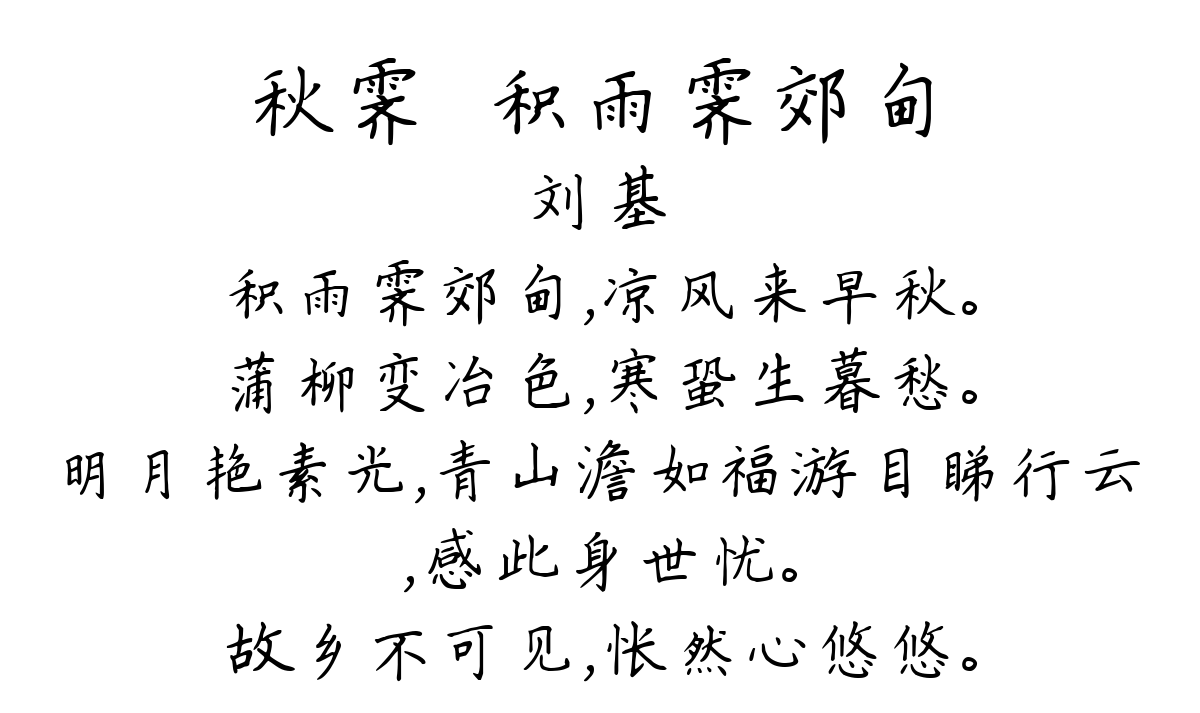 秋霁 积雨霁郊甸
刘基
积雨霁郊甸,凉风来早秋。
蒲柳变冶色,寒蛩生暮愁。
明月艳素光,青山澹如福游目睇行云
,感此身世忧。
故乡不可见,怅然心悠悠。